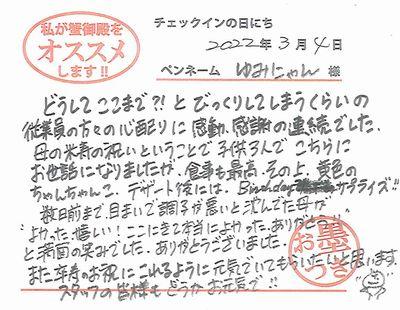 私が蟹御殿を
オススメ
します!!
チェックインの日にち
2022年3月4日
ペンネーム ゆみにゃん 様
どうしてここまで?!とびっくりしてしまうくらいの
従業員の方々の心配りに感動、感謝の連続でした。
母の米寿の祝いということで子供3人でこちらに
お世話になりましたが、食事も最高、その上、黄色の
ちゃんちゃんこ、デザート後には、Birthdayサプライズ!!
数日前まで、目まいで調子が悪いと沈んでた母が
"よかった、嬉しい!ここにきて本当によかった。ありがとう"
と満面の笑みでした。ありがとうございました。
また卒寿のお祝にこれるように元気でいてもらいたいと思います。
スタッフの皆様もどうかお元気で!!
お墨
つき